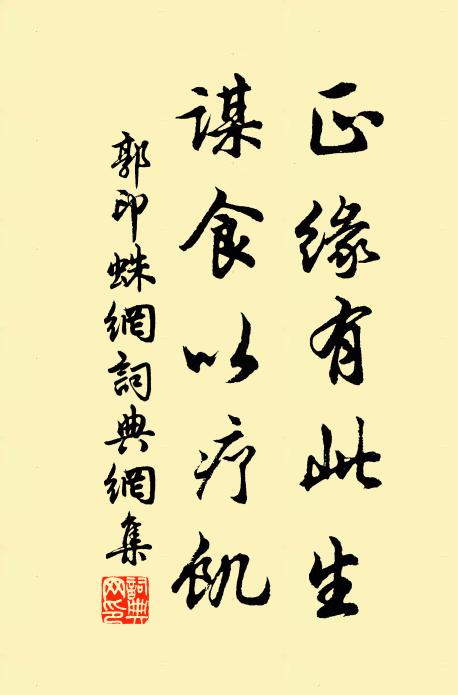 正緣有此生
謀食以疗飢
郭印蛛網詞典網集
詞典网印